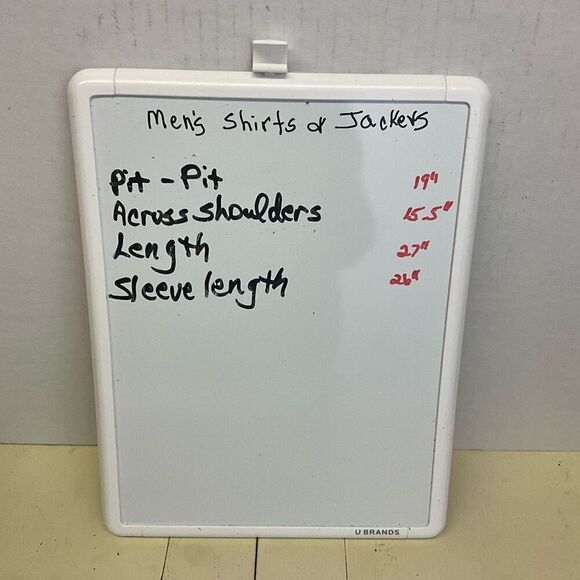 Men's Shirts or Jackets
Pit - Pit 19"
Across Shoulders 15.5"
Length 27"
Sleeve length 26"
U BRANDS